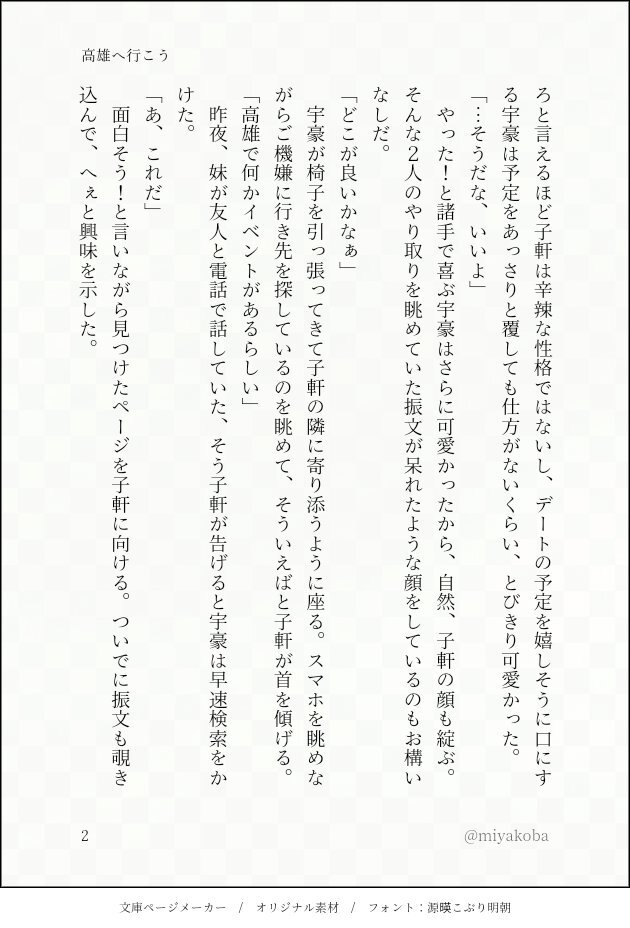 高雄へ行こう
ろと言えるほど子軒は辛辣な性格ではないし、デートの予定を嬉しそうに口にす
る宇豪は予定をあっさりと覆しても仕方がないくらい、とびきり可愛かった。
「…そうだな、いいよ」
　やった！と諸手で喜ぶ宇豪はさらに可愛かったから、自然、子軒の顔も綻ぶ。
そんな２人のやり取りを眺めていた振文が呆れたような顔をしているのもお構い
なしだ。
「どこが良いかなぁ」
　宇豪が椅子を引っ張ってきて子軒の隣に寄り添うように座る。スマホを眺めな
がらご機嫌に行き先を探しているのを眺めて、そういえばと子軒が首を傾げる。
「高雄で何かイベントがあるらしい」
　昨夜、妹が友人と電話で話していた、そう子軒が告げると宇豪は早速検索をか
けた。
「あ、これだ」
　面白そう！と言いながら見つけたページを子軒に向ける。ついでに振文も覗き
込んで、へぇと興味を示した。
2
@miyakoba
文庫ページメーカー　/　オリジナル素材　/　フォント：源暎こぶり明朝